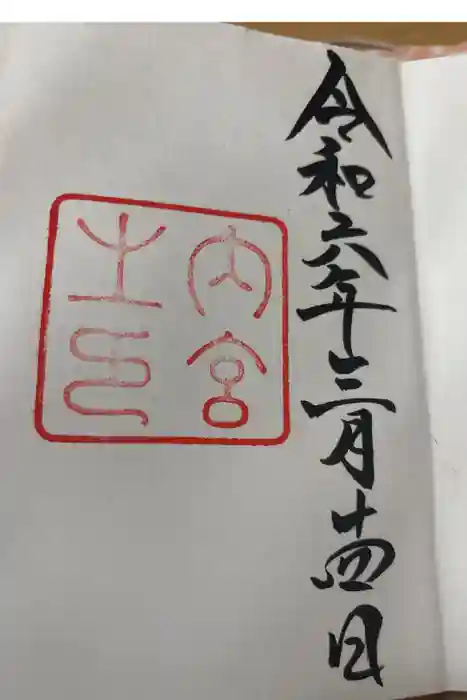 令和六年三月十四日
内宮
之印